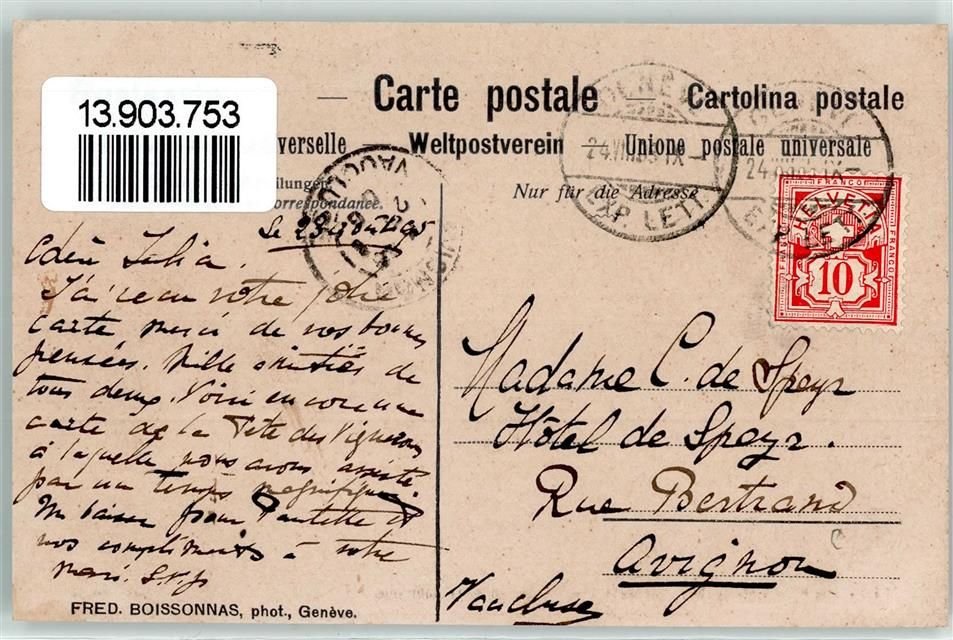 13.903.753
Carte postale — Cartolina postale
verselle Weltpostverein — Unione postale universale
ilungen
orrespondance.
Nur für die Adresse
24.VIII.05.IX
EXP. LETT.
HELVETIA
FRANCO
10
Le 23 Août 1905
Chère Julia,
J'ai reçu votre jolie
carte merci de vos bonnes
pensées. Mille amitiés de
tous deux. Voici encore une
carte de la Fête des Vignerons
à laquelle nous avons assisté
par un temps magnifique.
Un baiser pour et
nos compliments à votre
mari. S.v.p.
Madame C. de Speyr
Hôtel de Speyr.
Rue Bertrand
Avignon
Vaucluse
FRED. BOISSONNAS, phot., Genève.